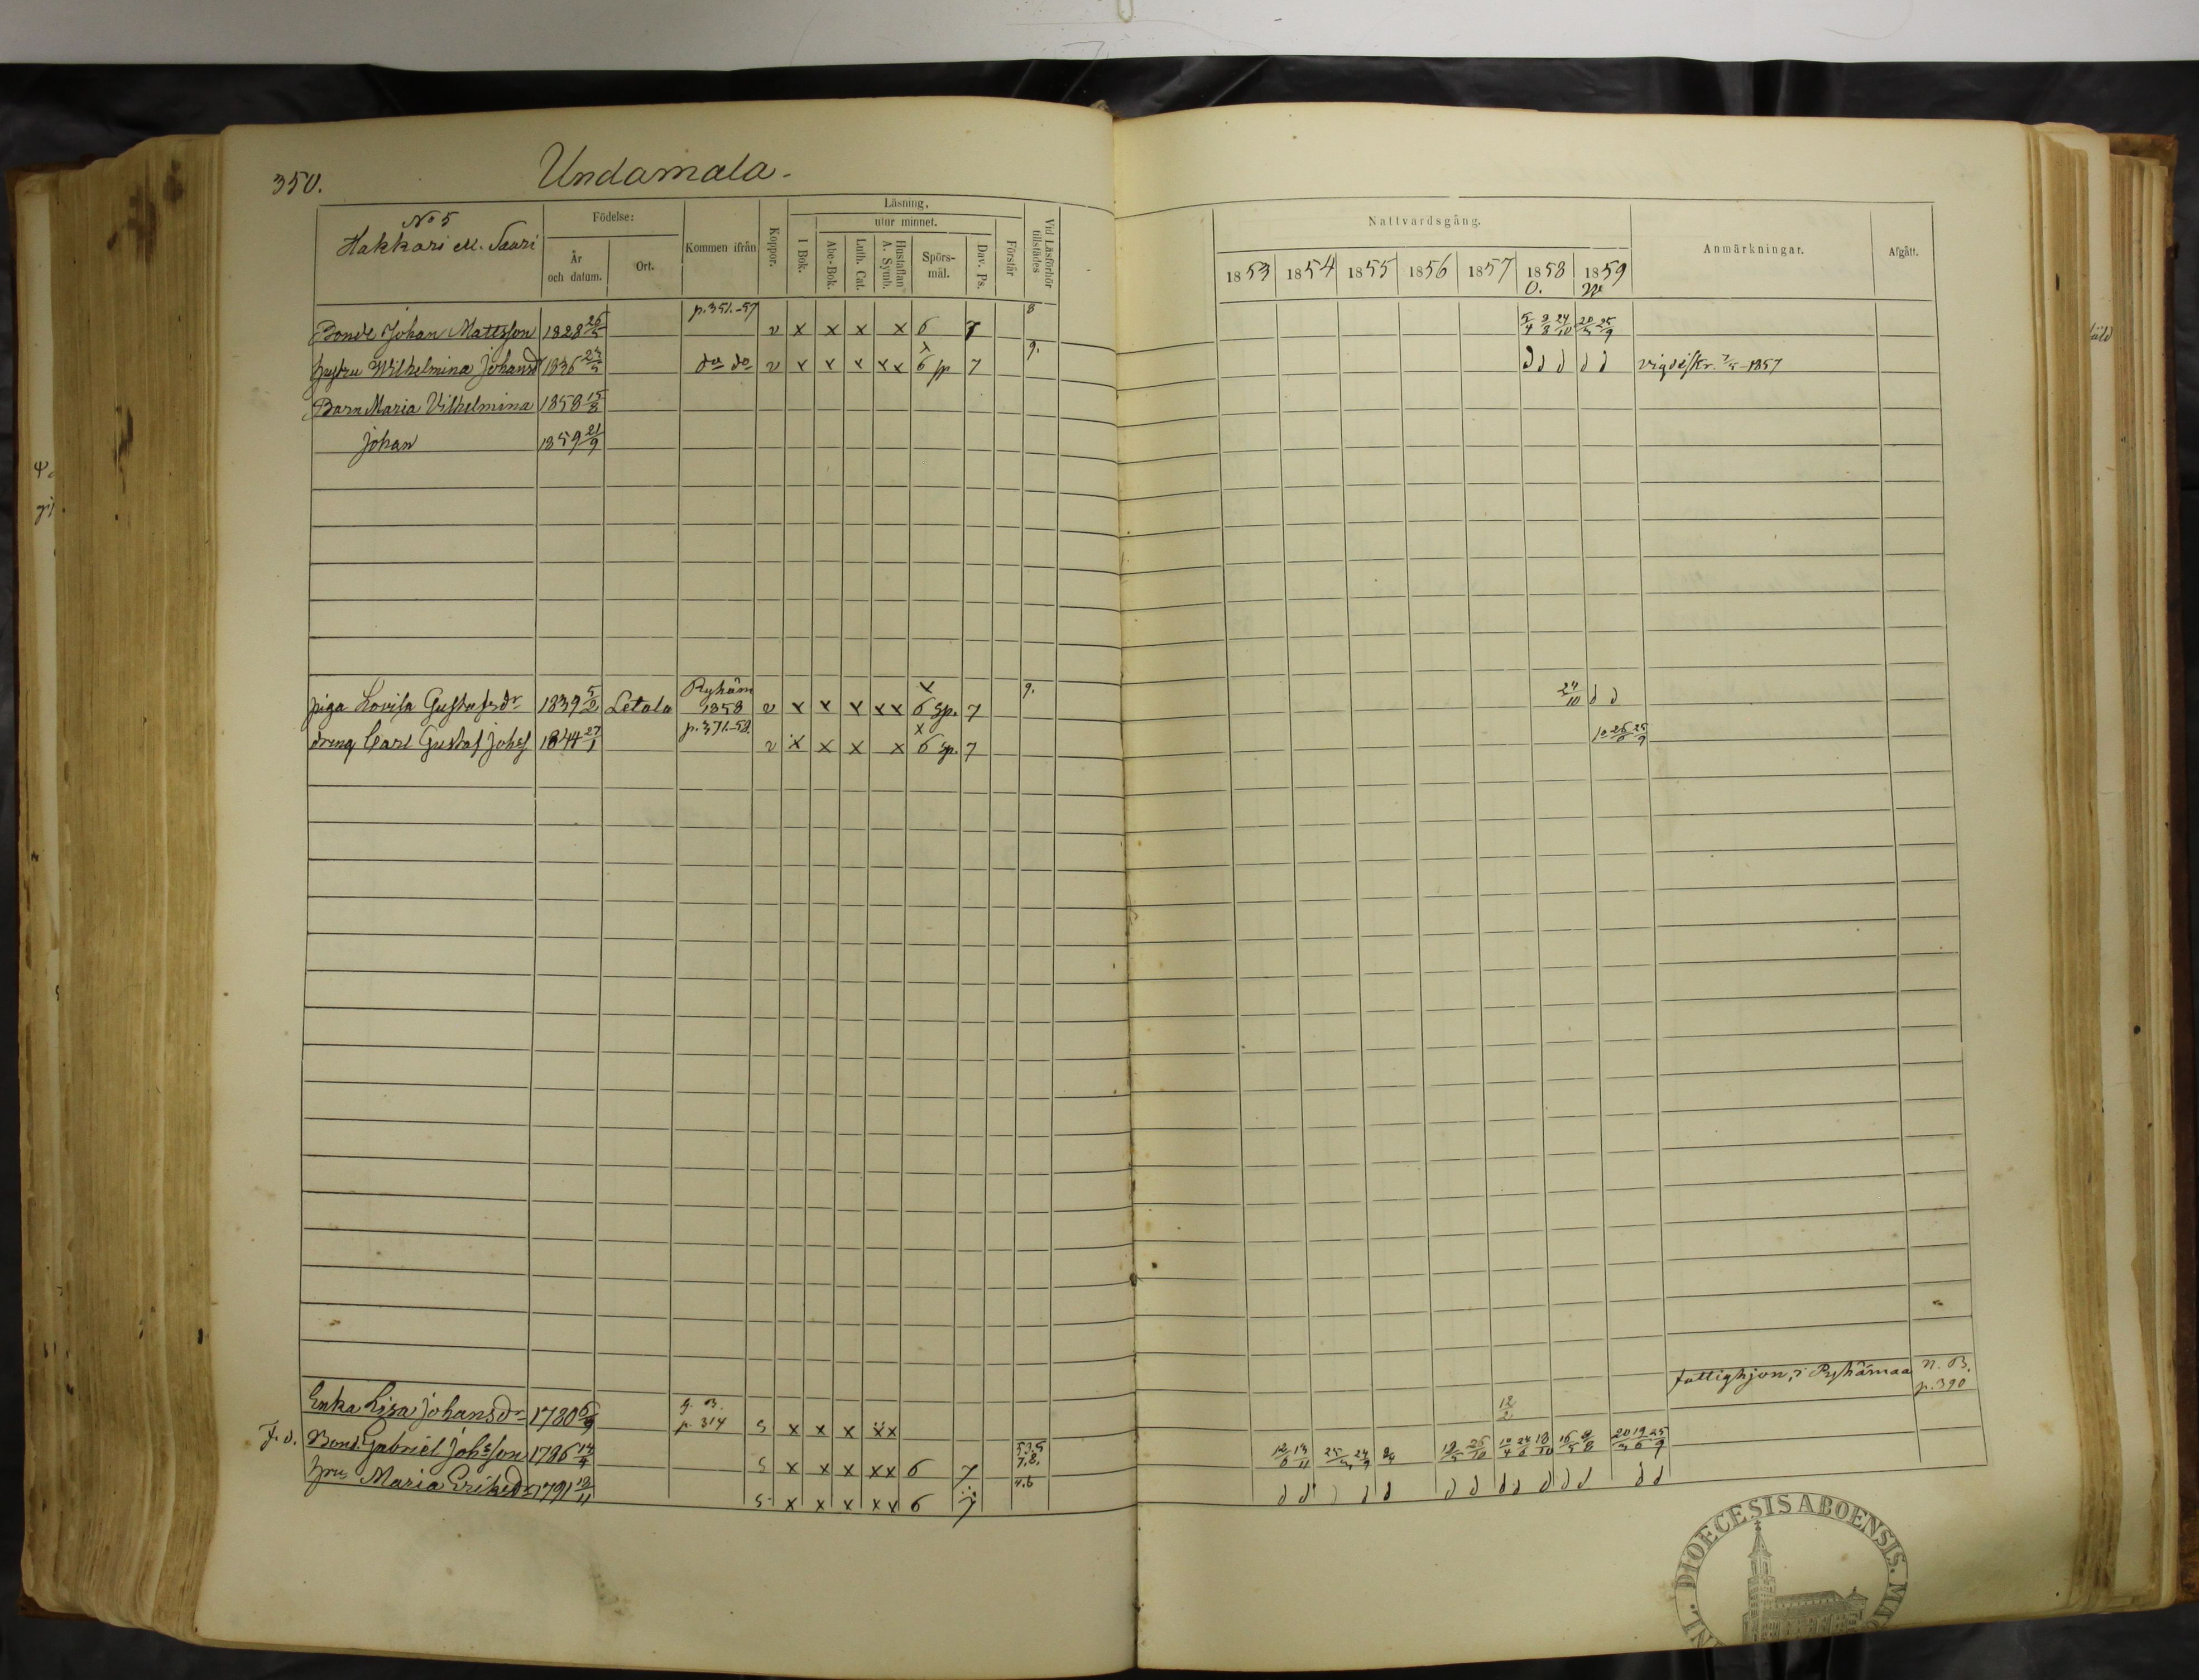 350.
Undamala.
No 5
Hakkari M. Saari
Födelse:
År och datum.
Ort.
Kommen ifrån
Koppor.
Läsning,
utur minnet.
I Bok.
Abc-Bok.
Luth. Cat.
Hustaflan A. Symb.
Spörs-mål.
Dav. Ps.
Förstår
Vid Läsförhör tillstädes
Nattvardsgång.
1853 1854 1855 1856 1857 1858 1859
Anmärkningar.
Afgått.
Bonde Johan Mattsson 1828 26/5 p.351.-57 v x x x x 6 7 8 5/4 8/8 24/10 20/3 25/9
hustru Wilhelmina Johansdr 1836 23/5 do do v x x x x x 6 sp 7 9. d d d d d vigde Kr. 7/5-1857
Barn Maria Vilhelmina 1858 15/8
Johan 1859 21/9
piga Lovisa Gustafsdr 1839 5/2 Letala Pyhäm 1858 v x x x x x 6 sp. 7 9. 24/10 d d
dreng Carl Gustaf Johss 1844 27/1 p.371.-58. v x x x x 6 sp. 7 26/6 25/9
Enka Lisa Johansdr 1780 6/9 g. B. p. 314 s x x x x x 12/2 fattighjon, i Pyhämaa n. B. p.390
F.d. Bond. Gabriel Johsson 1786 s x x x x x 6 7 5.3.5 7.8. 12/6 13/11 10/4 24/6 18/10 16/5 8/8 20/3 19/6 25/9
hru Maria Eriksdr 1791 s x x x x x 6 7 4.6 d d d d d d d d d d d d d
DIOECESIS ABOENSIS.